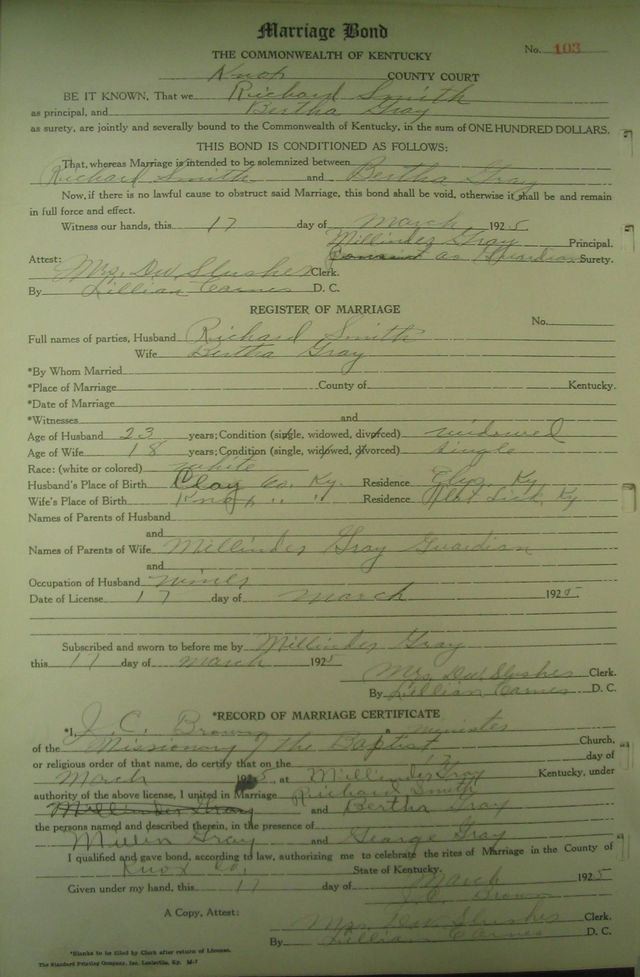 Marriage Bond
THE COMMONWEALTH OF KENTUCKY
No. 103
Knox COUNTY COURT
BE IT KNOWN, That we Richard Smith
as principal, and Bertha Gray
as surety, are jointly and severally bound to the Commonwealth of Kentucky, in the sum of ONE HUNDRED DOLLARS.
THIS BOND IS CONDITIONED AS FOLLOWS:
That, whereas Marriage is intended to be solemnized between
Richard Smith and Bertha Gray
Now, if there is no lawful cause to obstruct said Marriage, this bond shall be void, otherwise it shall be and remain
in full force and effect.
Witness our hands, this 17 day of March 1925
Millinder Gray Principal.
as Guardian Surety.
Attest:
Mrs. DW Slusher Clerk.
By Lillian Carnes D. C.
REGISTER OF MARRIAGE
No.
Full names of parties, Husband Richard Smith
Wife Bertha Gray
*By Whom Married
*Place of Marriage County of Kentucky.
*Date of Marriage
*Witnesses and
Age of Husband 23 years; Condition (single, widowed, divorced) widowed
Age of Wife 18 years; Condition (single, widowed, divorced) single
Race: (white or colored) white
Husband's Place of Birth Clay Co. Ky. Residence Ky
Wife's Place of Birth Knox " " Residence Flat Lick, Ky
Names of Parents of Husband
and
Names of Parents of Wife Millinder Gray Guardian
and
Occupation of Husband miner
Date of License 17 day of March 1925
Subscribed and sworn to before me by Millinder Gray
this 17 day of March 1925
Mrs. DW Slusher Clerk.
By Lillian Carnes D. C.
*RECORD OF MARRIAGE CERTIFICATE
*I, J. C. Brown a minister
of the Missionary of the Baptist Church,
or religious order of that name, do certify that on the 17 day of
March 1925, at Millinder Gray Kentucky, under
authority of the above license, I united in Marriage Richard Smith
Millinder Gray and Bertha Gray
the persons named and described therein, in the presence of
Millen Gray and George Gray
I qualified and gave bond, according to law, authorizing me to celebrate the rites of Marriage in the County of
Knox Co. State of Kentucky.
Given under my hand, this 17 day of March 1925
J. C. Brown
A Copy, Attest:
Mrs. DW Slusher Clerk.
By Lillian Carnes D. C.
*Blanks to be filled by Clerk after return of License.
The Standard Printing Company, Inc. Louisville, Ky.